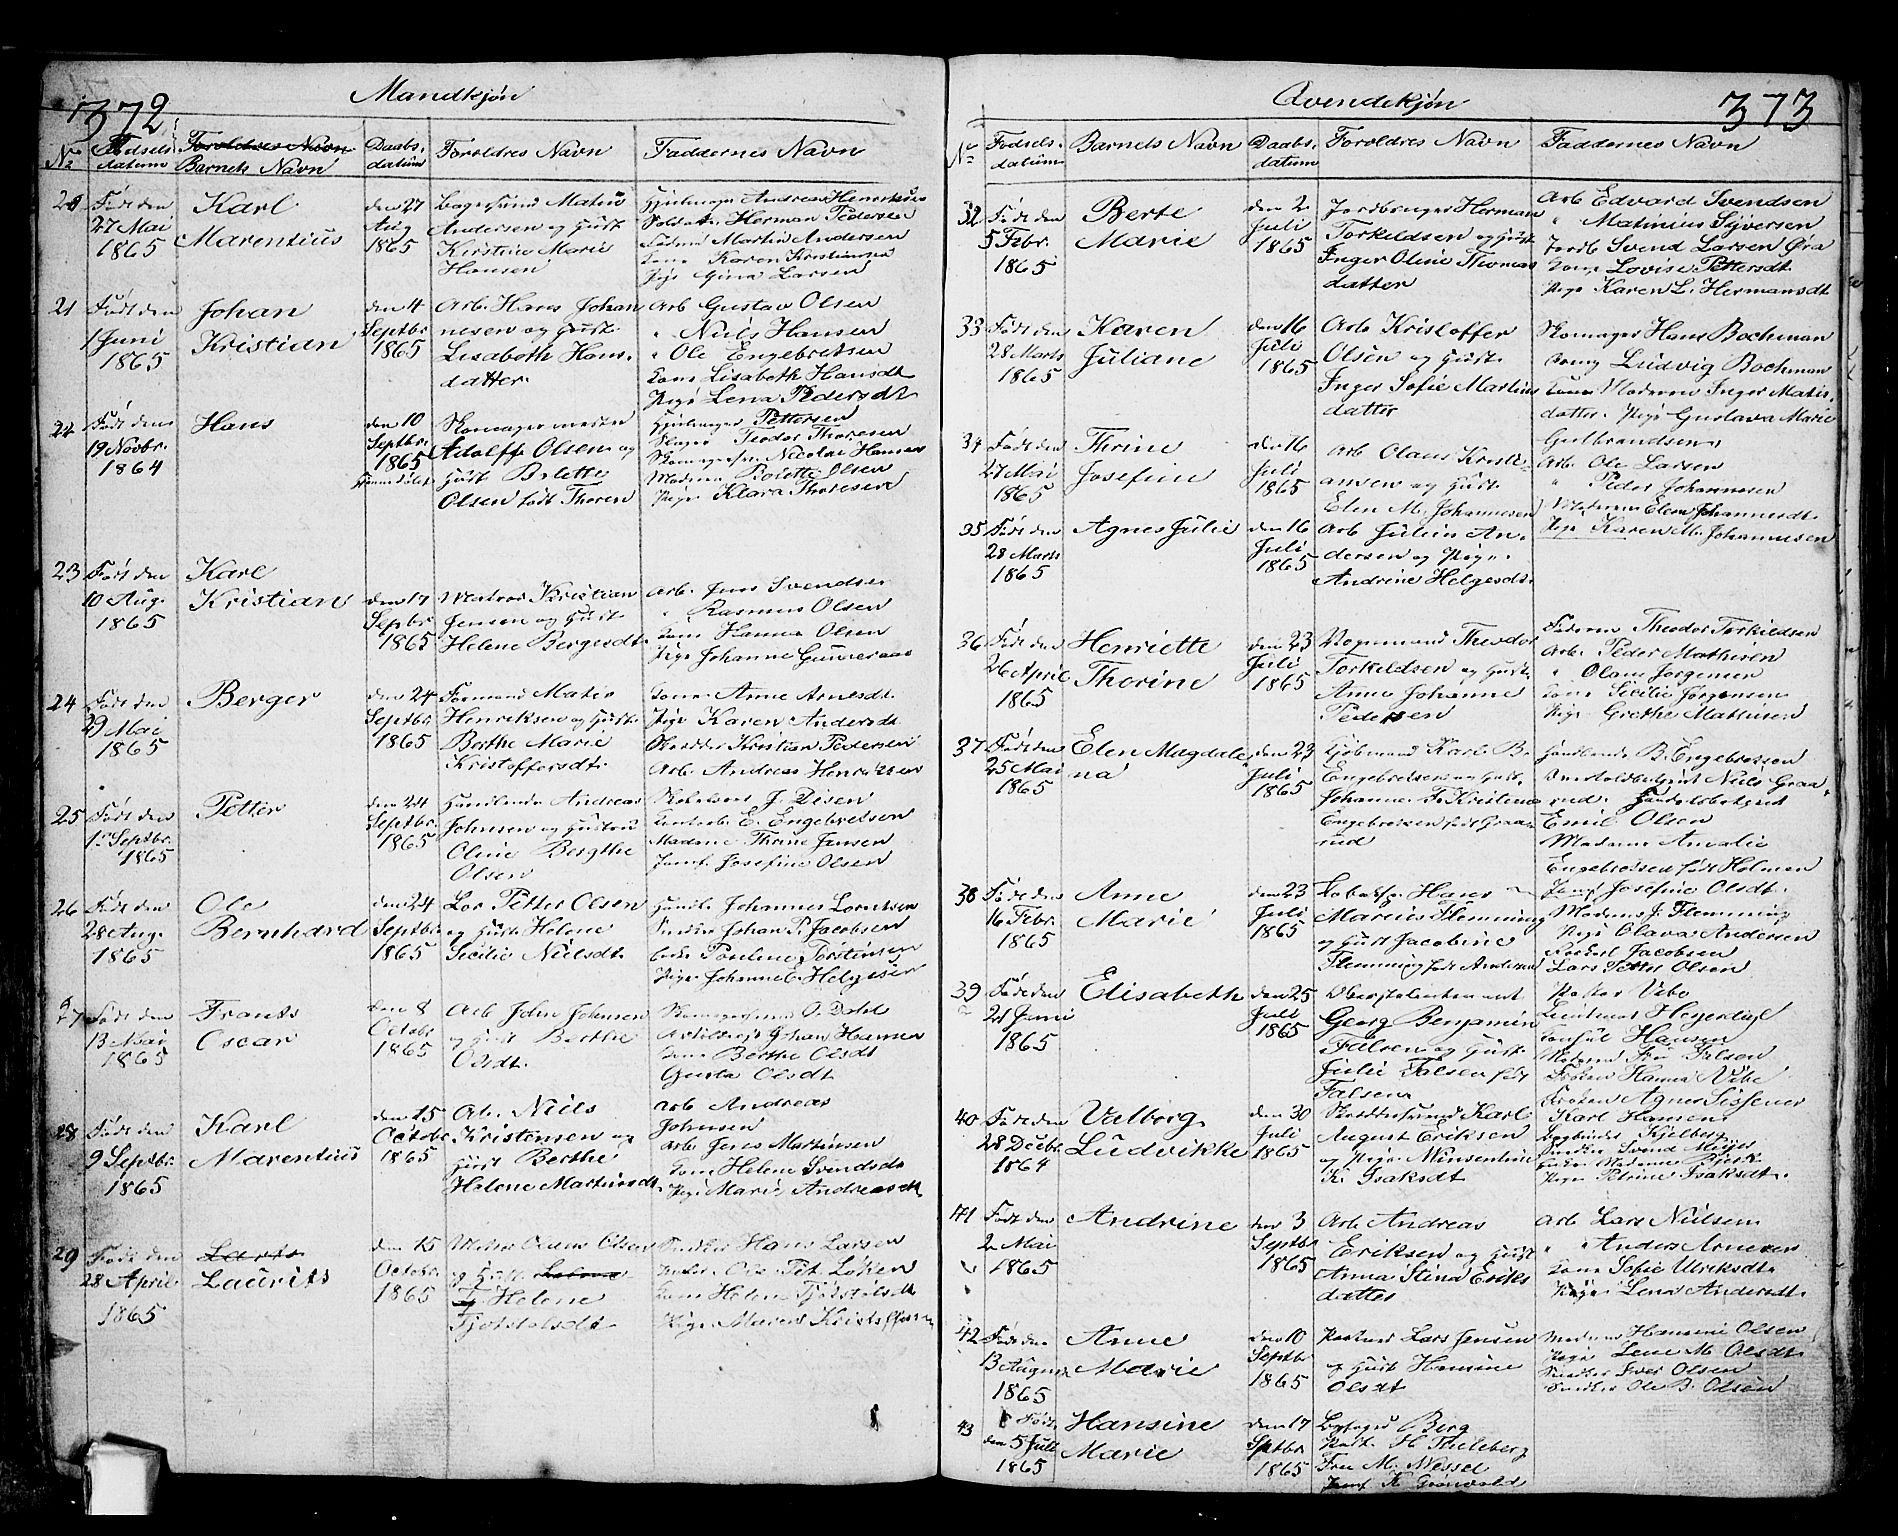 372
Mandkjön
No
Fødsels-
datum
Foroldres Navn
Barnets Navn
Daabs-
datum
Foroldres Navn
Faddernes Navn
20
Født den
27 Mai
1865
Karl
Marentius
den 27
Aug
1865
Matis
Andersen og Hust
Kristine Marie
Hansen
Andreas Henriksen
Soldat Herman Pedersen
Martin Andersen
Kone Karen Kristianna
Pige Gina Larsen
21
Født den
1 Juni
1865
Johan
Kristian
den 4
Septbr
1865
Arb. Hans Johan
nesen og Hust.
Lisabeth Hans-
datter.
Arb Gustav Olsen
" Niels Hansen
" Ole Engebretsen
Kone Lisabeth Hansdt
Pige Lena Pedersdt
22
Født den
19 Novbr.
1864
Hans
den 10
Septbr.
1865
Skomagermester
Adolff Olsen og
Hust
Olsen født Thoren
Pettersen
Teodor Thoresen
Nicolai Hansen
Moderen Olsen
Pige Klara Thoresen
23
Født den
10 Aug.
1865
Karl
Kristian
den 17
Septbr.
1865
Matros Kristian
Jensen og Hust
Helene Bergesdt
Arb. Jens Svendsen
" Rasmus Olsen
Kone Hanna Olsen
Pige Johanne
24
Født den
29 Mai
1865
Berger
den 24
Septbr
1865
Formand Matis
Henriksen og Hust
Berthe Marie
Kristoffersdt.
Kone Anne Arnesdt.
Pige Karen Andersdt
Kristian Pedersen
Arb. Andreas Henriksen
25
Født den
1 Septbr.
1865
Petter
den 24
Septbr
1865
Andreas
Johnsen og Hustru
Oline Bergthe
Olsen
J. Disen
E. Engebretsen
Madame Thrine Jensen
Jomf Josefine Olsen
26
Født den
28 Aug.
1865
Ole
Bernhard
den 24
Septbr
1865
Petter Olsen
og Hust Helene
Secilie Nielsdt.
Johannes Lorntsen
Johan P. Jacobsen
Torstensen
Pige Johanne E. Helgesen
27
Født den
13 Mai
1865
Frants
Oscar
den 8
Octobr
1865
Arb John Johnsen
og Hust Berthe
Olsdt.
O. Dahl
Johan Hansen
Kone Berthe Olsdt
Gusta Olsdt
28
Født den
9 Septbr.
1865
Karl
Marentius
den 15
Octobr
1865
Arb. Niels
Kristensen og
Hust Berthe
Helene Martinsdt
Arb Andreas
Johnsen
Arb. Jens Martinsen
Kone Helene Svendsdt
Pige Marie Andreasdt
29
Født den
28 April
1865
Laurits
Laurits
den 15
Octobr.
1865
Olsen
og Hust.
Helene
Hans Larsen
Ole Pet. Løken
Kone Helene
Pige Maren Kristoffersen
373
Qvendekjön
No
Fødsels-
datum
Barnets Navn
Daabs-
datum
Foroldres Navn
Faddernes Navn
32
Født den
5 Febr.
1865
Berte
Marie
den 2
Juli
1865
Jordbruger Herman
Torkildsen og Hust
Inger Oline Thomas
datter
Arb Edvard Svendsen
" Matinius Syversen
Jordb Svend Larsen Øra
Kone Lovise Pettersdt
Pige Karen L. Hermansdt
33
Født den
28 Marts
1865
Karen
Juliane
den 16
Juli
1865
Arb Kristoffer
Olsen og Hust.
Inger Sofie Martins
datter
Skomager Hans Bochman
Ludvig Bochman
Moderen Inger Matis-
datter. Pige Gustava Marie
Gulbrandsen.
34
Født den
27 Mai
1865
Thrine
Josefine
den 16
Juli
1865
Arb Olaus Kristi-
ansen og Hust
Elen M. Johannesen
Arb. Ole Larsen
" Peder Johannesen
Moderen Elen Johannesdt.
Pige Karen M. Johannesen
35
Født den
28 Marts
1865
Agnes Julie
den 16
Juli
1865
Arb Julius An-
dersen og Pige
Andrine Helgesdt.
36
Født den
26 April
1865
Henriette
Thorine
den 23
Juli
1865
Vognmand Theodor
Torkildsen og Hust
Anne Johanne
Pedersen
Faderen Theodor Torkildsen
Arb. Peder Mathisen
" Olaus Jorgensen
Kone Secilie Jorgensen
Pige Grethe Mathisen
37
Født den
25 Mai
1865
Elen Magdale
na
den 23
Juli
1865
Kjøbmand Karl B.
Engebretsen og Hust.
Johanne F. Kristine
Engebretsen født Graa-
rud
B. Engebretsen
Niels Graa-
rud.
Emil Olsen
Madame Amalie
Engebretsen født Holmen
Jomf Josefine Olsdt.
38
Født den
16 Febr.
1865
Anne
Marie
den 23
Juli
1865
Hans
Marius Flemming
og Hust Jacobine
Flemming født Andersen
Madame J. Flemming
Pige Olava Andersen
Jacobsen
Lars Petter Olsen
39
Født den
21 Juni
1865
Elisabeth
den 25
Juli
1865
Georg Benjamin
Falsen og Hust.
Julie Falsen født
Falsen
Pastor Vibe
Lieutnant Heyerdahl
Konsul Hansen
Moderen Fru Falsen
Frøken Hanna Vibe
Frøken Agnes Sissener
40
Født den
28 Decbr.
1864
Valborg
Ludvikke
den 30
Juli
1865
Karl
August Eriksen
og Pige
K. Isaksdt
Karl Hansen
Kjelberg
Svend Moses
Madame Bjerk
Pige Petrine Isaksdt.
41
Født den
2 Mai
1865
Andrine
den 3
Septbr
1865
Arb Andreas
Eriksen og Hust
Anna Stina Eriks
datter
Arb Lars Nielsen
" Anders Arnesen
Kone Sofie Ulriksdt.
Pige Lena Andersdt.
42
Født den
13 August
1865
Anne
Marie
den 10
Septbr
1865
Lars Jensen
og Hust Hansine
Olsdt
Hansine Olsen
Pige Lene M. Olsdt.
Iver Olsen
Ole B. Olsen
43
Født
den 5 Juli
1865
Hansine
Marie
den 17
Septbr
1865
Berg
H. Theleberg
Fru M. Møssel
Jomf K. Grønvold